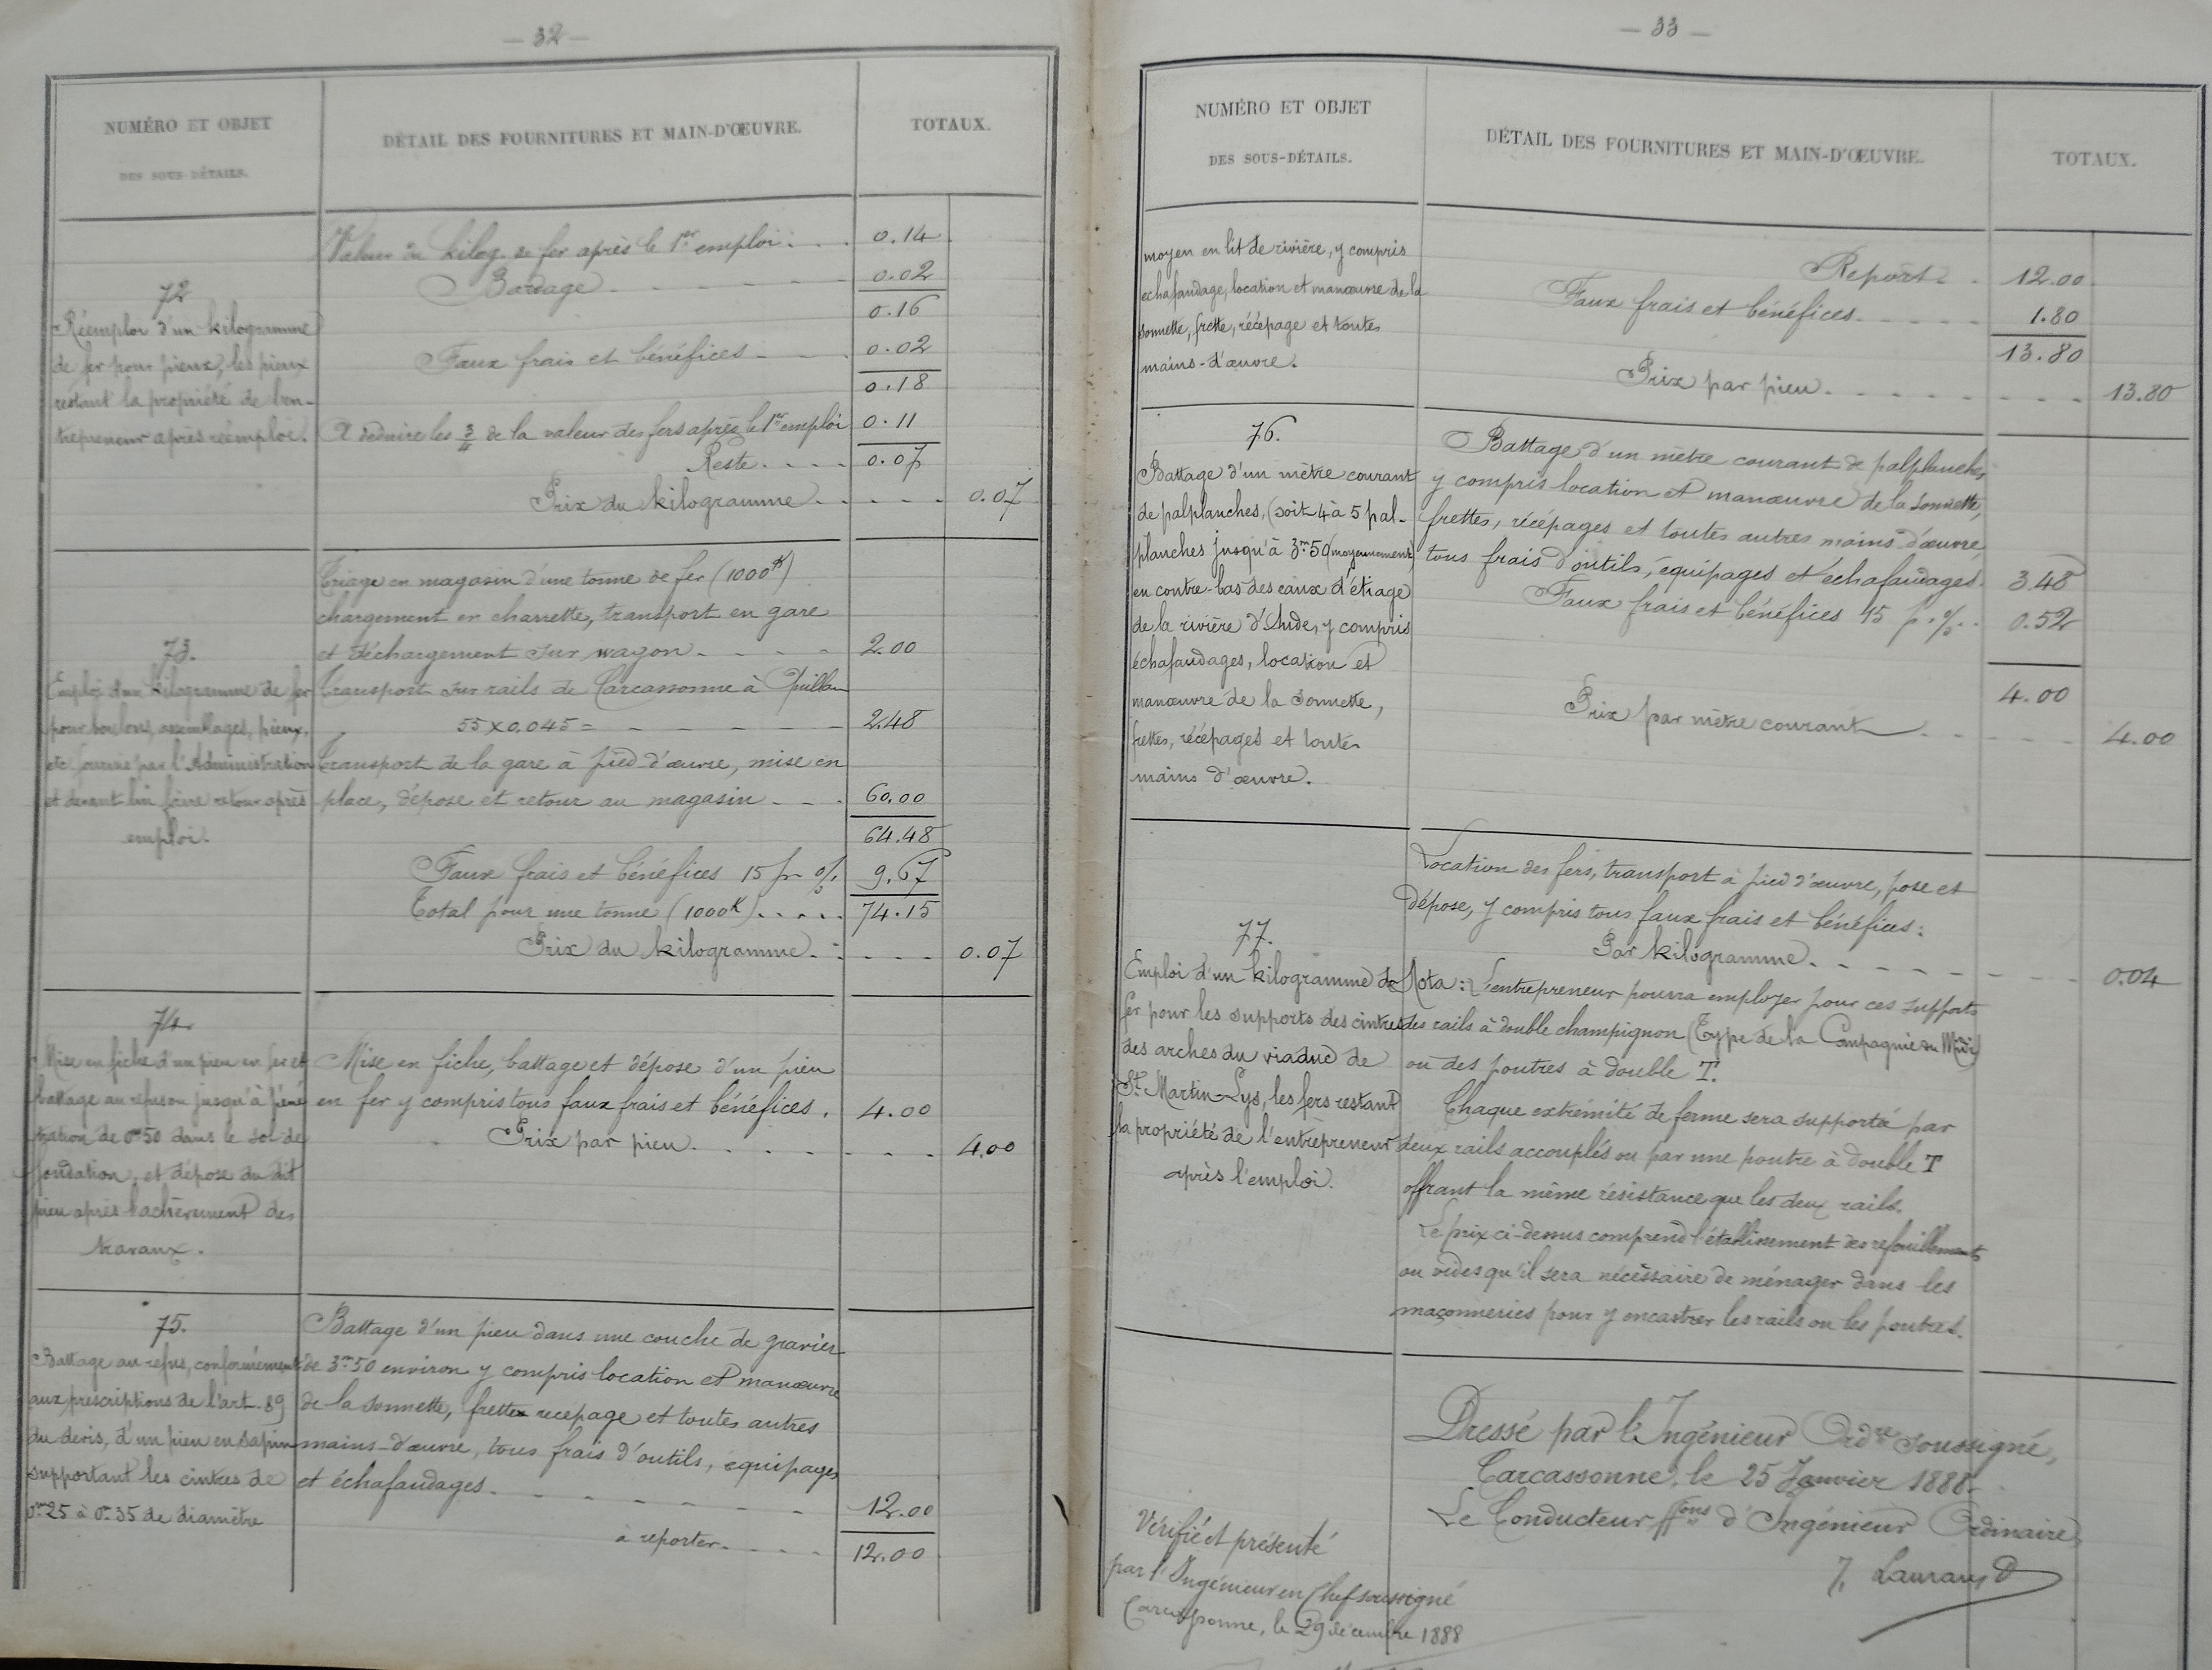 — 32 —
NUMÉRO ET OBJET
DES SOUS-DÉTAILS.
DÉTAIL DES FOURNITURES ET MAIN-D'ŒUVRE.
TOTAUX.
Valeur du kilog. de fer après le 1er emploi . . . 0.14
Bardage 0.02
0.16
Faux frais et bénéfices 0.02
0.18
A déduire les 3/4 de la valeur des fers après le 1er emploi 0.11
Reste 0.07
Prix du kilogramme 0.07
72
Réemploi d'un kilogramme
de fer pour pieux, les pieux
restant la propriété de l'en-
trepreneur après réemploi.
73.
Emploi d'un kilogramme de fer
pour boulons, assemblages, pieux,
etc. fournis par l'Administration
et devant lui faire retour après
emploi.
Triage en magasin d'une tonne de fer (1000K)
chargement en charrette, transport en gare
et déchargement sur wagon 2.00
Transport sur rails de Carcassonne à Quillan
55 x 0.045 = 2.48
Transport de la gare à pied-d'œuvre, mise en
place, dépose et retour au magasin 60.00
64.48
Faux frais et bénéfices 15 p. % 9.67
Total pour une tonne (1000K) 74.15
Prix du kilogramme 0.07
74
Mise en fiche d'un pieu en fer et
battage au refus ou jusqu'à péné
tration de 0m50 dans le sol de
fondation, et dépose du dit
pieu après l'achèvement des
travaux.
Mise en fiche, battage et dépose d'un pieu
en fer y compris tous faux frais et bénéfices. 4.00
Prix par pieu 4.00
75.
Battage au refus, conformément
aux prescriptions de l'art. 89
du devis, d'un pieu en sapin
supportant les cintres de
0m25 à 0m35 de diamètre
Battage d'un pieu dans une couche de gravier
de 3m50 environ y compris location et manœuvre
de la sonnette, frette recepage et toutes autres
mains-d'œuvre, tous frais d'outils, équipages
et échafaudages 12.00
à reporter 12.00
— 33 —
NUMÉRO ET OBJET
DES SOUS-DÉTAILS.
DÉTAIL DES FOURNITURES ET MAIN-D'ŒUVRE.
TOTAUX.
moyen en lit de rivière, y compris
echafaudage, location et manœuvre de la
sonnette, frette, récépage et toutes
mains-d'œuvre.
Report 12.00
Faux frais et bénéfices 1.80
13.80
Prix par pieu 13.80
76.
Battage d'un mètre courant
de palplanches, (soit 4 à 5 pal-
planches jusqu'à 3m50 (moyennement)
en contre-bas des eaux d'étiage
de la rivière d'Aude, y compris
échafaudages, location et
manœuvre de la sonnette,
frettes, récépages et toutes
mains d'œuvre.
Battage d'un mètre courant de palplanches,
y compris location et manœuvre de la sonnette,
frettes, récépages et toutes autres mains d'œuvre,
tous frais d'outils, équipages et échafaudages. 3.48
Faux frais et bénéfices 15 p. % 0.52
4.00
Prix par mètre courant 4.00
77.
Emploi d'un kilogramme de
fer pour les supports des cintres
des arches du viaduc de
St Martin-Lys, les fers restant
la propriété de l'entrepreneur
après l'emploi.
Location des fers, transport à pied d'œuvre, pose et
dépose, y compris tous faux frais et bénéfices:
Par kilogramme 0.04
Nota: L'entrepreneur pourra employer pour ces supports
des rails à double champignon (Type de la Compagnie du Midi)
ou des poutres à double T.
Chaque extrémité de ferme sera supporté par
deux rails accouplés ou par une poutre à double T
offrant la même résistance que les deux rails.
Le prix ci-dessus comprend l'établissement des refouillements
ou vides qu'il sera nécessaire de ménager dans les
maçonneries pour y encastrer les rails ou les poutres.
Dressé par l'Ingénieur Ordre soussigné,
Carcassonne, le 25 Janvier 1888.
Le Conducteur ffons d'Ingénieur Ordinaire,
J. Lauraud
Vérifié et présenté
par l'Ingénieur en Chef soussigné
Carcassonne, le 29 décembre 1888